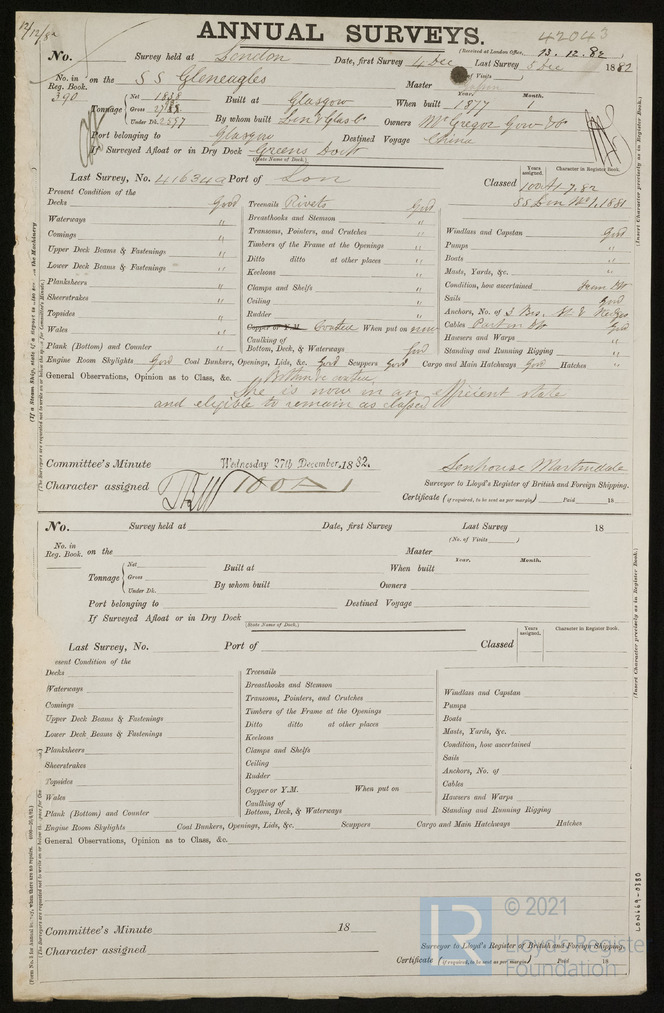 12/12/82
ANNUAL SURVEYS.
42043
(Received at London Office, 13.12.82)
No. Survey held at London Date, first Survey 4 Dec Last Survey 5 Dec 1882
(No. of Visits )
No. in Reg. Book. 390 on the SS Gleneagles Master
Tonnage Net 1838 Gross Under Dk. Built at Glasgow When built Year. 1877 Month. 1
By whom built Owners McGregor Gow & Co
Port belonging to Glasgow Destined Voyage China
If Surveyed Afloat or in Dry Dock Greens Dock
(State Name of Dock.)
Last Survey, No. 41634a Port of Lon Classed
Years assigned. Character in Register Book.
100A1-7,82
SS Lon No 1, 1881
Present Condition of the
Decks Good Treenails Rivets Good
Waterways " Breasthooks and Stemson " Windlass and Capstan Good
Comings " Transoms, Pointers, and Crutches " Pumps "
Upper Deck Beams & Fastenings " Timbers of the Frame at the Openings " Boats "
Lower Deck Beams & Fastenings " Ditto ditto at other places " Masts, Yards, &c. "
Planksheers " Keelsons " Condition, how ascertained from
Sheerstrakes " Clamps and Shelfs " Sails Good
Topsides " Ceiling " Anchors, No. of 3 Brs.
Wales " Rudder " Cables Good
Plank (Bottom) and Counter " Copper or Y.M. Coated When put on now Hawsers and Warps "
Caulking of Bottom, Deck, & Waterways Good Standing and Running Rigging "
Engine Room Skylights Good Coal Bunkers, Openings, Lids, &c. Good Scuppers Good Cargo and Main Hatchways Good Hatches "
General Observations, Opinion as to Class, &c. Bottom coated
She is now in an efficient state
and eligible to remain as classed
Committee's Minute Wednesday 27th December, 1882. Senhouse Martindale
Character assigned 100A1 Surveyor to Lloyd's Register of British and Foreign Shipping.
Certificate (if required, to be sent as per margin) Paid 18
No. Survey held at Date, first Survey Last Survey 18
(No. of Visits )
No. in Reg. Book. on the Master
Tonnage Net Gross Under Dk. Built at When built Year. Month.
By whom built Owners
Port belonging to Destined Voyage
If Surveyed Afloat or in Dry Dock
(State Name of Dock.)
Last Survey, No. Port of Classed
Years assigned. Character in Register Book.
esent Condition of the
Decks Treenails
Waterways Breasthooks and Stemson Windlass and Capstan
Comings Transoms, Pointers, and Crutches Pumps
Upper Deck Beams & Fastenings Timbers of the Frame at the Openings Boats
Lower Deck Beams & Fastenings Ditto ditto at other places Masts, Yards, &c.
Planksheers Keelsons Condition, how ascertained
Sheerstrakes Clamps and Shelfs Sails
Topsides Ceiling Anchors, No. of
Wales Rudder Cables
Plank (Bottom) and Counter Copper or Y.M. When put on Hawsers and Warps
Caulking of Bottom, Deck, & Waterways Standing and Running Rigging
Engine Room Skylights Coal Bunkers, Openings, Lids, &c. Scuppers Cargo and Main Hatchways Hatches
General Observations, Opinion as to Class, &c.
Committee's Minute 18
Character assigned Surveyor to Lloyd's Register of British and Foreign Shipping.
Certificate (if required, to be sent as per margin) Paid 18
(Insert Character precisely as in Register Book.)
(Insert Character precisely as in Register Book.)
LON669-0380
LR
© 2021
Lloyd's Register
Foundation